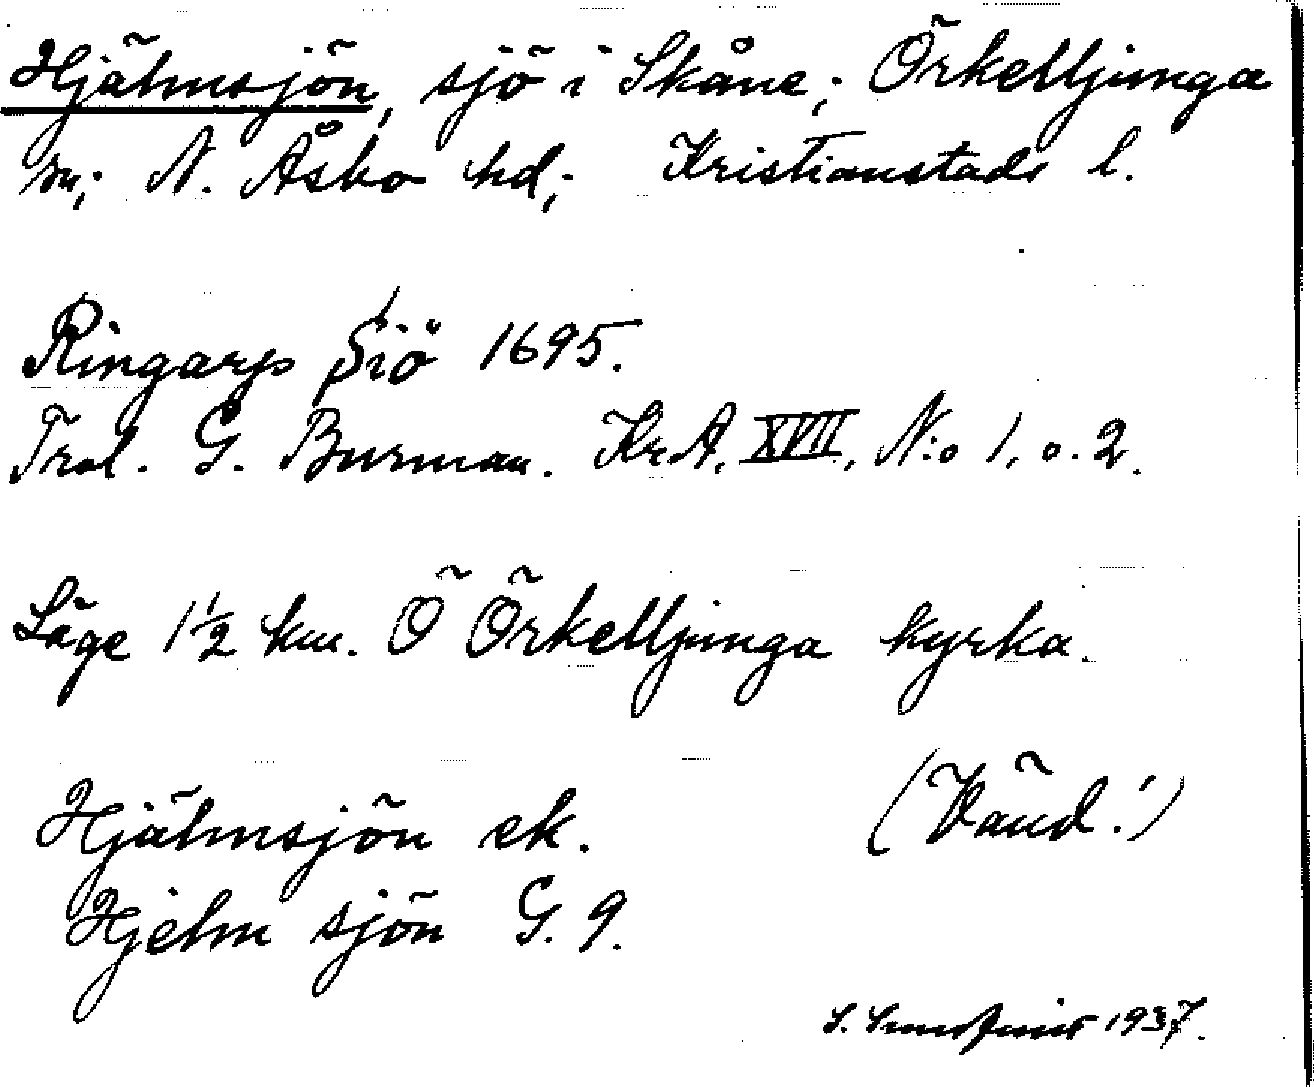 Hjälmsjön, sjö i Skåne; Örkelljunga
sn; N. Åsbo hd; Kristianstads l.
Ringarps Siö 1695.
Trol. G. Burman. Kr.A. XVII, N:o 1, o. 2.
Läge 1½ km. Ö Örkelljunga kyrka.
Hjälmsjön ek. (Vänd!)
Hjelm sjön G. 9.
S. 1937.